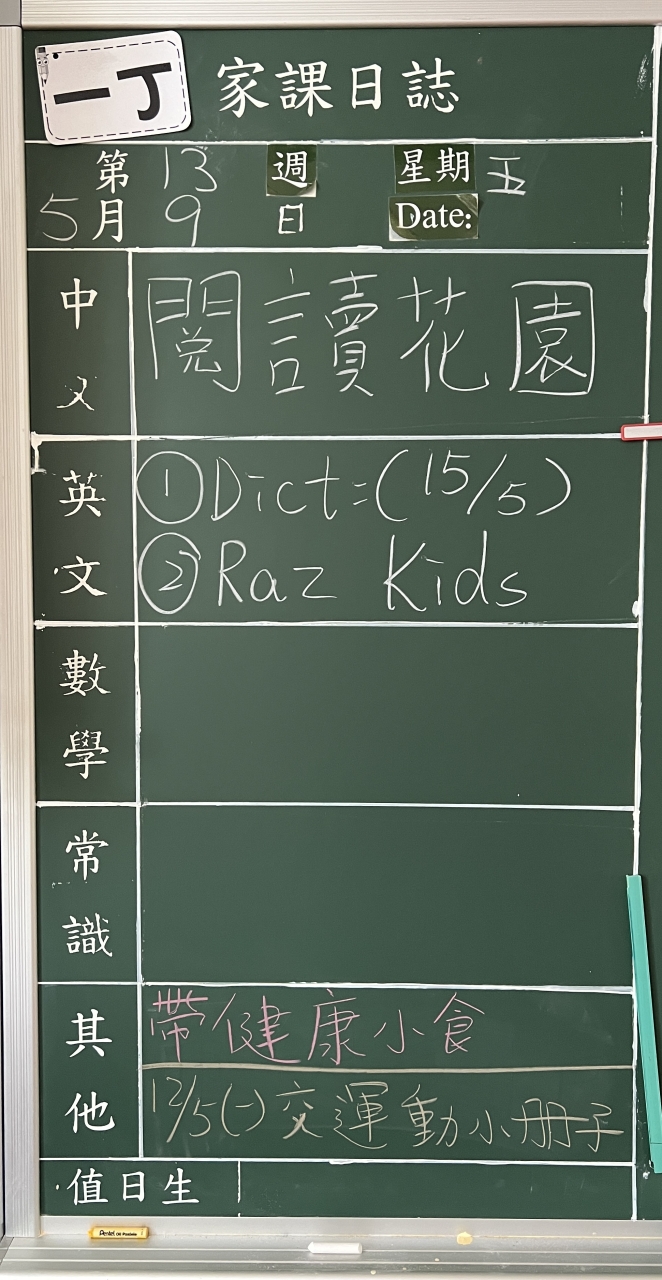 一丁 家課日誌
第 13 週 星期 五
5月 9 日 Date:
中文 閱讀花園
英文 ①Dict:(15/5)
②Raz Kids
數學
常識
其他 帶健康小食
12/5(一)交運動小册子
值日生
Pentel Oil Pastels